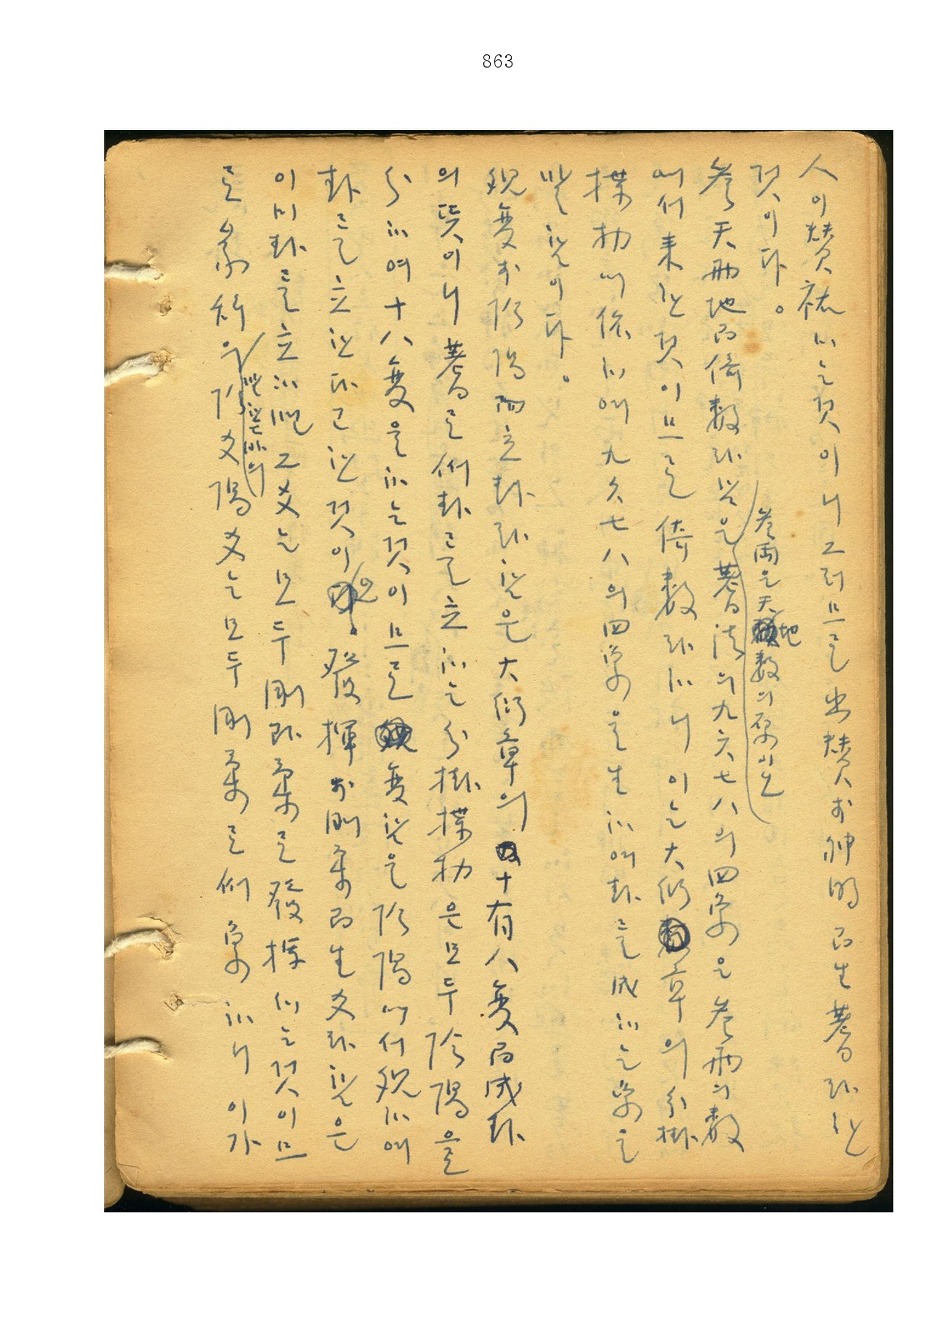 863
人이 贊祐하는 것이니 그러므로 幽贊於神明而生蓍라 한
것이다。
參天兩地而倚數라 함은 蓍法의 九六七八의 四象은 參兩의 數
參兩은 天地數의 原이오
에서 来한 것이므로 倚數라 하니 이는 大衍章의 分掛
揲扐에 依하여 九六七八의 四象을 生하여 卦를 成하는 象을
말함이다。
觀變於陰陽而立卦라 함은 大衍章의 十有八變而成卦
의 뜻이니 蓍로써 卦를 立하는 分掛揲扐은 모두 陰陽을
分하여 十八變을 하는 것이므로 變함은 陰陽에서 觀하여
卦를 立한다고 한 것이오。發揮於剛柔而生爻라 함은
이미 卦를 立하면 그 爻는 모두 剛과 柔로 發揮하는 것이므
로 象한 바의 陰爻陽爻는 모두 剛柔로써 象하니 이가